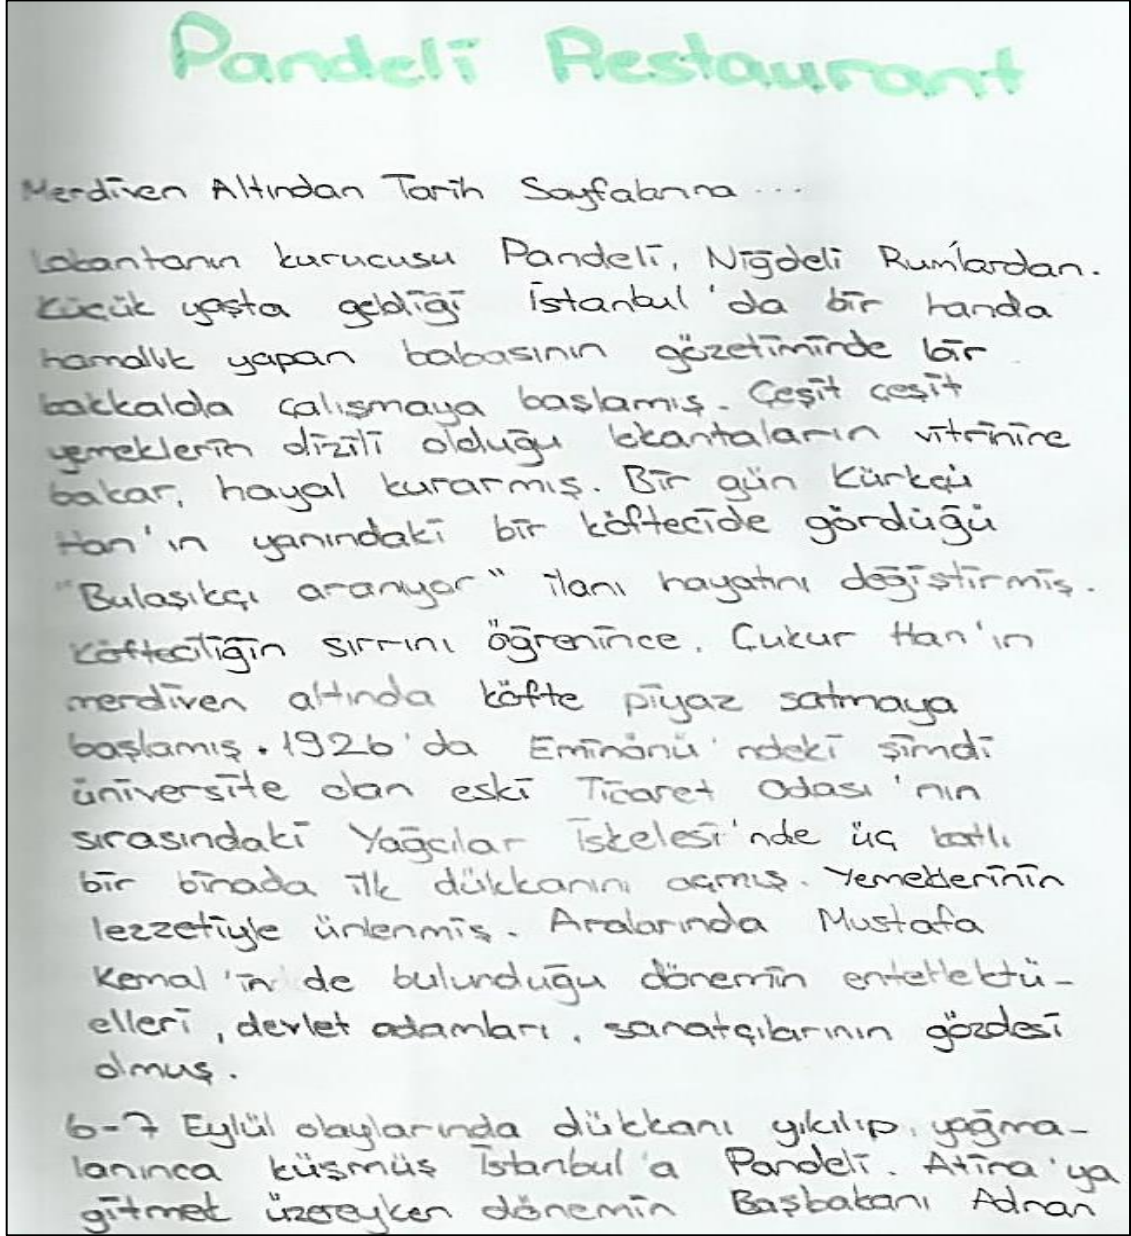 Pandeli Restaurant
Merdiven Altından Tarih Sayfalarına ...
Lokantanın kurucusu Pandeli, Niğdeli Rum'lardan.
Küçük yaşta geldiği İstanbul'da bir handa
hamallık yapan babasının gözetiminde bir
bakkalda çalışmaya başlamış. Çeşit çeşit
yemeklerin dizili olduğu lokantaların vitrinine
bakar, hayal kurarmış. Bir gün Kürkçü
Han'ın yanındaki bir köftecide gördüğü
"Bulaşıkçı aranıyor" ilanı hayatını değiştirmiş.
Köfteciliğin sırrını öğrenince, Çukur Han'ın
merdiven altında köfte piyaz satmaya
başlamış. 1926'da Eminönü'ndeki şimdi
üniversite olan eski Ticaret Odası'nın
sırasındaki Yağcılar İskelesi'nde üç katlı
bir binada ilk dükkanını açmış. Yemeklerinin
lezzetiyle ünlenmiş. Aralarında Mustafa
Kemal'in de bulunduğu dönemin entellektü-
elleri, devlet adamları, sanatçılarının gözdesi
olmuş.
6-7 Eylül olaylarında dükkanı yıkılıp, yağma-
lanınca küsmüş İstanbul'a Pandeli. Atina'ya
gitmek üzereyken dönemin Başbakanı Adnan